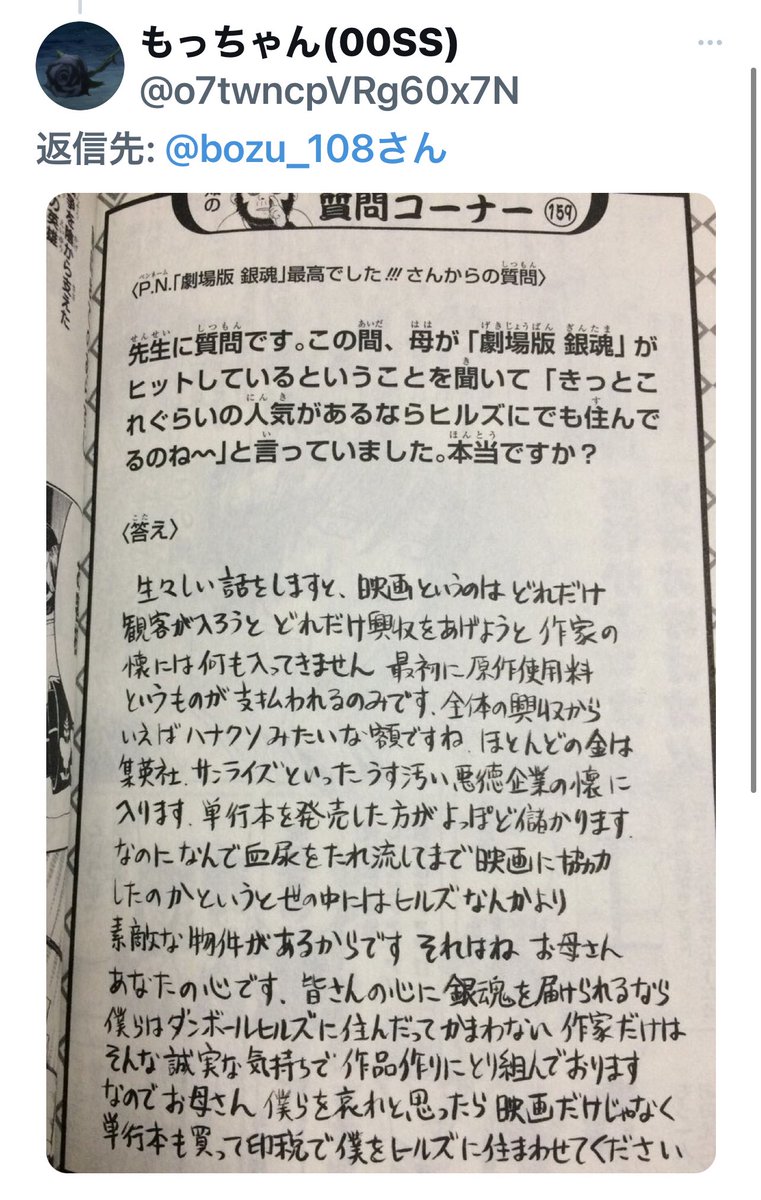 もっちゃん(00SS)
@o7twncpVRg60x7N
返信先: @bozu_108さん
の
質問コーナー 159
〈P.N.「劇場版 銀魂」最高でした!!! さんからの質問〉
先生に質問です。この間、母が「劇場版 銀魂」が
ヒットしているということを聞いて「きっとこ
れぐらいの人気があるならヒルズにでも住んで
るのね〜〜」と言っていました。本当ですか？
〈答え〉
生々しい話をしますと、映画というのは どれだけ
観客が入ろうと どれだけ興収をあげようと 作家の
懐には何も入ってきません 最初に原作使用料
というものが支払われるのみです、全体の興収から
いえばハナクソみたいな額ですね ほとんどの金は
集英社、サンライズといったうす汚い悪徳企業の懐に
入ります、単行本を発売した方がよっぽど儲かります、
なのになんで血尿をたれ流してまで映画に協力
したのかというと世の中にはヒルズなんかより
素敵な物件があるからです それはね お母さん
あなたの心です、皆さんの心に銀魂を届けられるなら
僕らはダンボールヒルズに住んだってかまわない 作家だけは
そんな誠実な気持ちで作品作りにとり組んでおります
なのでお母さん 僕らを哀れと思ったら映画だけじゃなく
単行本も買って印税で僕をヒルズに住まわせてください